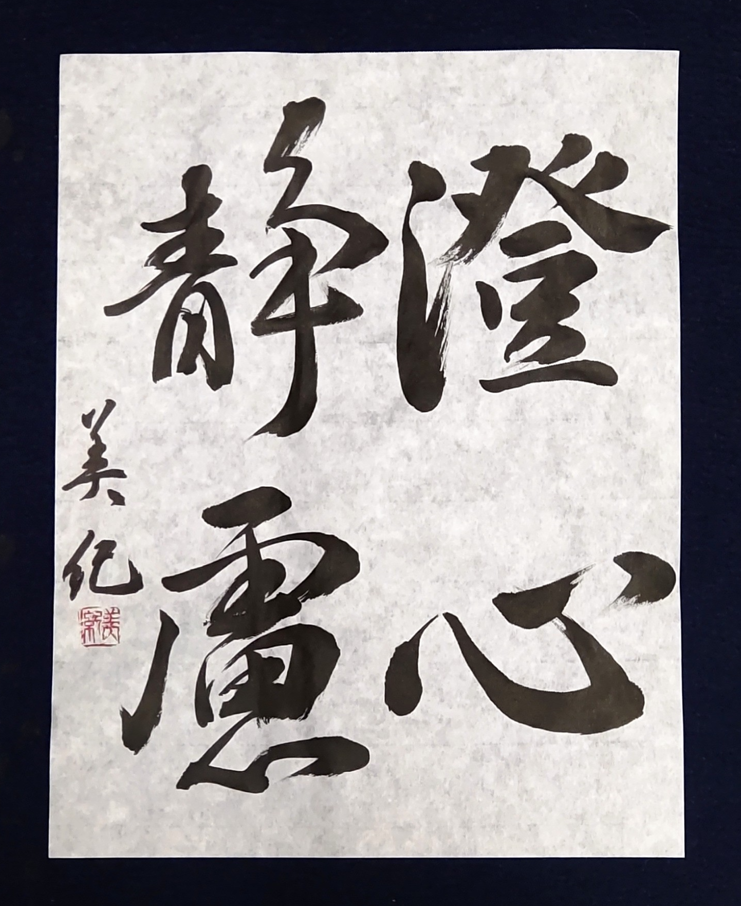 澄心
静慮
美紀